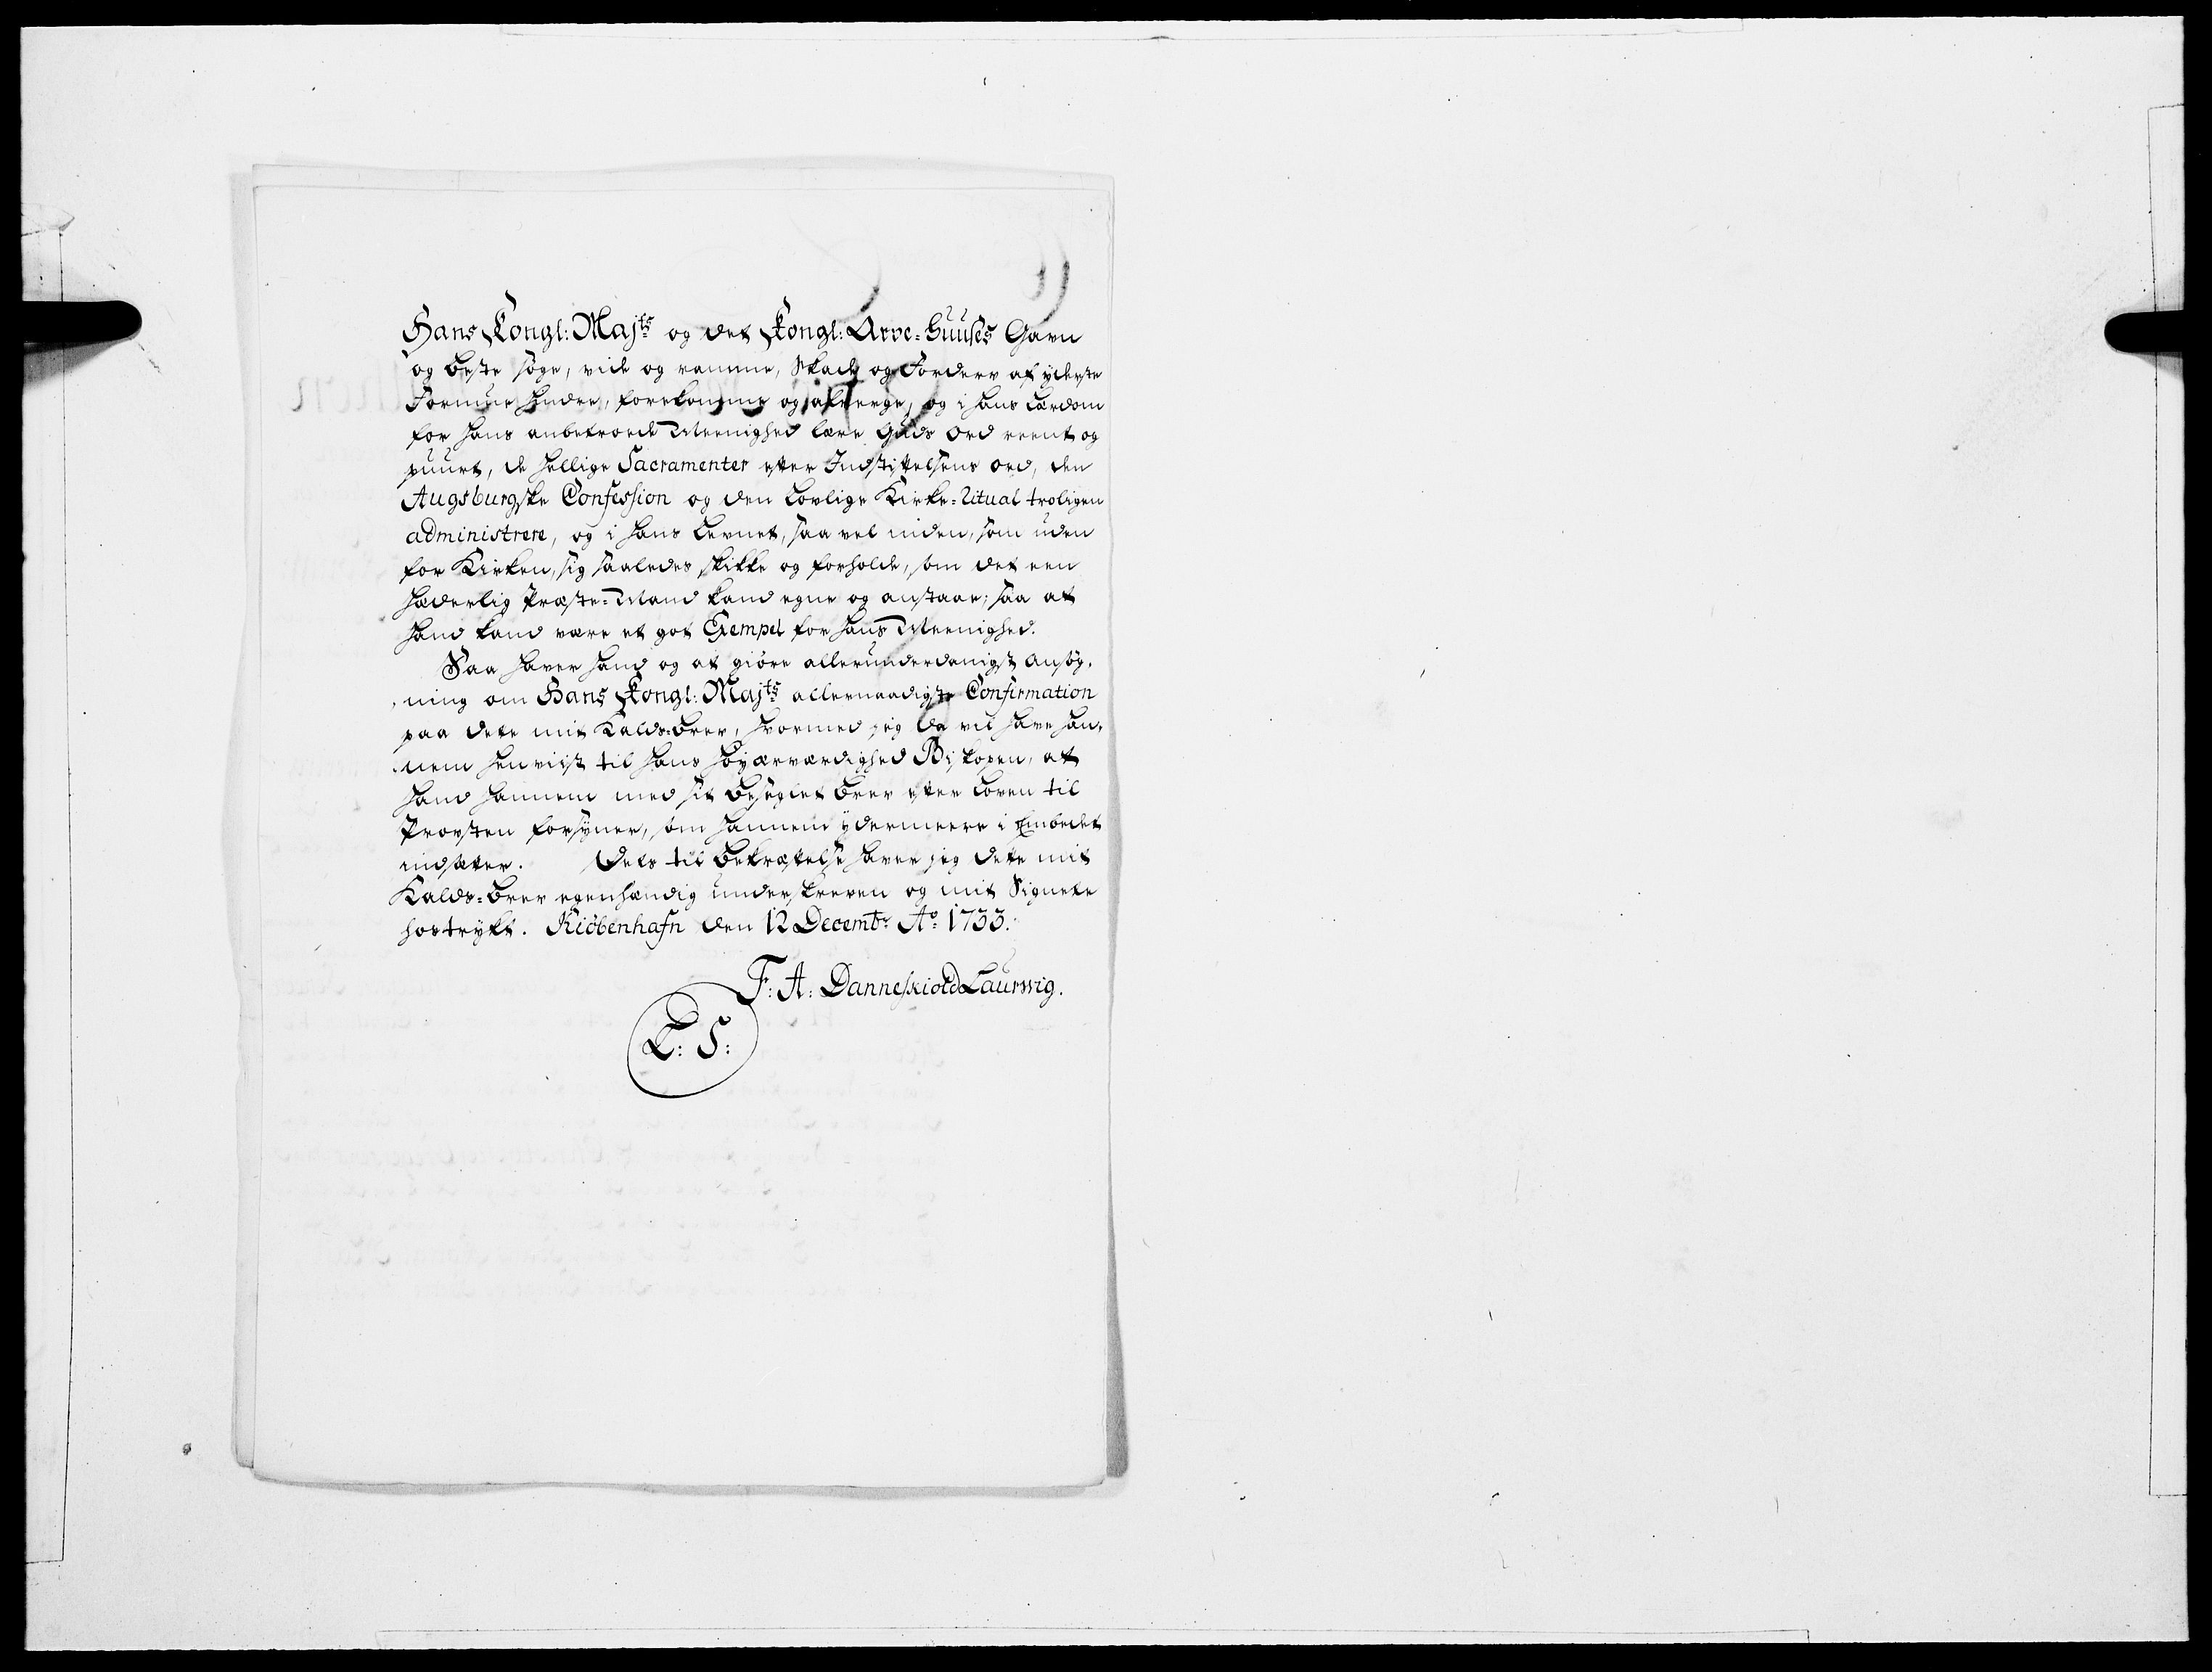 Hans Kongl: Majts og det Kongl: Arve=Huuses Gavn
og beste søge, vide og ramme, Skade og Forderv af yderste
Formue hindre, forekomme og afverge, og i hans Lærdom
for hans anbetroede Meenighed lære Guds Ord reent og
puurt, de hellige Sacramenter efter Indstiftelsens ord, den
Augsburgske Confession og den lovlige Kirke=Ritual troligen
administrere, og i hans Levnet, saa vel inden, som uden
for Kirken, sig saaledes skikke og forholde, som det een
hæderlig Præste=Mand kand egne og anstaae; saa at
hand kand være et got Exempel for hans Meenighed.
Saa haver hand og at giøre allerunderdanigst Ansøg-
ning om Hans Kongl: Majts allernaadigste Confirmation
paa dette mit Kalds=brev, hvormed jeg da vil have han-
nem henviist til hans Højærværdighed Biskopen, at
hand hannem med sit beseglet brev efter Loven til
Provsten forsyner, som hannem ydermeere i Embedet
indsætter. Dets til bekræftelse haver jeg dette mit
Kalds=brev egenhændig underskreven og mit Signete
hostrykt. Kiöbenhafn den 12 Decembr Ao 1733.
F: A: Danneskiold Laurwig.
L: S: